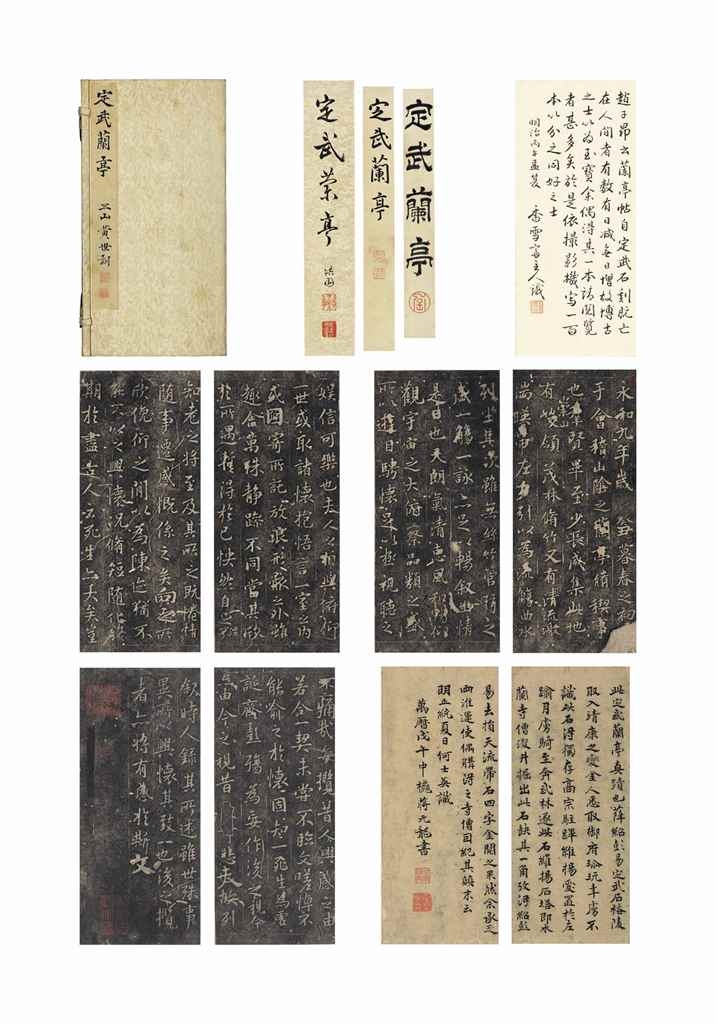 定武蘭亭
定武蘭亭
定武蘭亭
定武蘭亭
趙子昂云蘭亭帖自定武石刻既亡
在人間者有數有日減無日增故博古
之士以為至寶余偶得其一本請閱覽
者甚多矣於是依撮影機寫一百
本以分之同好之士
明治丙午孟夏 香雪家主人識
永和九年歲 癸暮春之初
于會稽山陰之蘭亭脩禊事
也羣賢畢至少長咸集此地
有崇山峻領茂林脩竹又有清流激
湍暎帶左右引以為流觴曲水
列坐其次雖無絲竹管弦之
盛一觴一詠亦足以暢叙幽情
是日也天朗氣清惠風和暢仰
觀宇宙之大俯察品類之盛
所以遊目騁懷足以極視聽之
娛信可樂也夫人之相與俯仰
一世或取諸懷抱悟言一室之內
或因寄所託放浪形骸之外雖
趣舍萬殊静躁不同當其欣
於所遇蹔得於己怏然自足不
知老之將至及其所之既惓情
隨事遷感慨係之矣向之所
欣俛仰之閒以為陳迹猶不
能不以之興懷况脩短随化終
期於盡古人云死生亦大矣豈
此定武蘭亭真蹟也薛紹彭易定武石裕陵
取入靖康之變金人悉取御府珍玩車虜不
識此石得獨存高宗駐蹕維揚愛置於左
踰月虜騎至奔武林遂此石維揚石塔即
蘭寺僧浚井掘出此石缺其一角攷得紹彭
易去損天流帶右四字金閱之果然余承乏
兩淮運使偶購得之寺僧因紀其顛末云
明正統夏日何士英識
萬曆戊午中秋蔣元龍書
不痛哉每攬昔人興感之由
若合一契未嘗不臨文嗟悼不
能喻之於懷固知一死生為虛
誕齊彭殤為妄作後之視今
亦由今之視昔 悲夫故列
叙時人録其所述雖世殊事
異所以興懷其致一也後之攬
者亦將有感於斯文